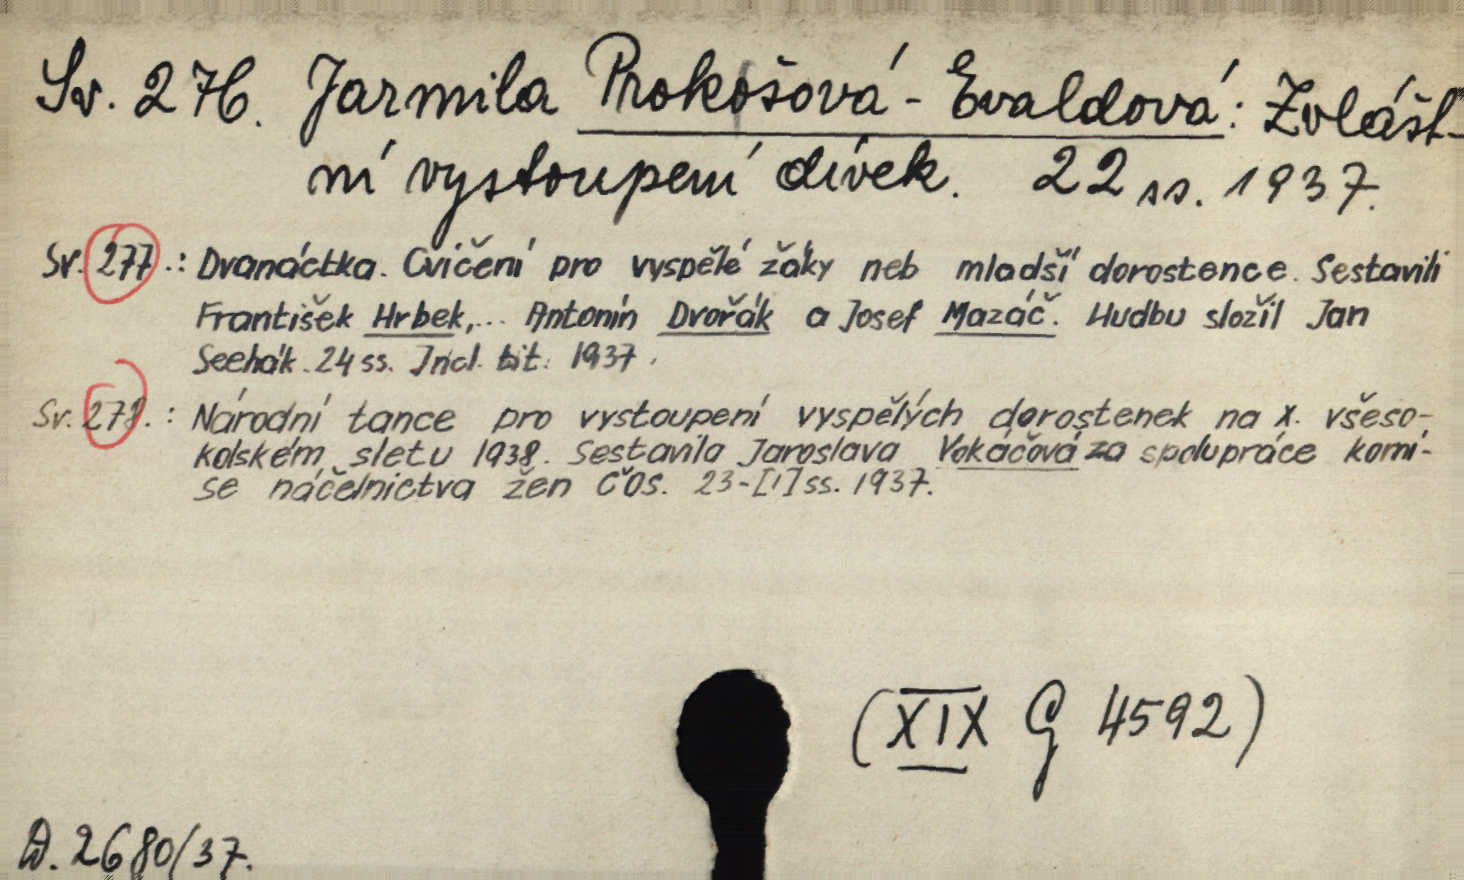 Sv. 276. Jarmila Prokošová - Evaldová: Zvlášt-
ní vystoupení dívek. 22 ss. 1937.
Sv. 277.: Dvanáctka. Cvičení pro vyspělé žáky neb mladší dorostence. Sestavili
František Hrbek,... Antonín Dvořák a Josef Mazáč. Hudbu složil Jan
Seehák. 24 ss. Incl. tit. 1937.
Sv. 278.: Národní tance pro vystoupení vyspělých dorostenek na X. všeso-
kolském sletu 1938. Sestavila Jaroslava Vokáčová za spolupráce komi-
se náčelnictva žen ČOS. 23-[1] ss. 1937.
(XIX G 4592)
D. 2680/37.